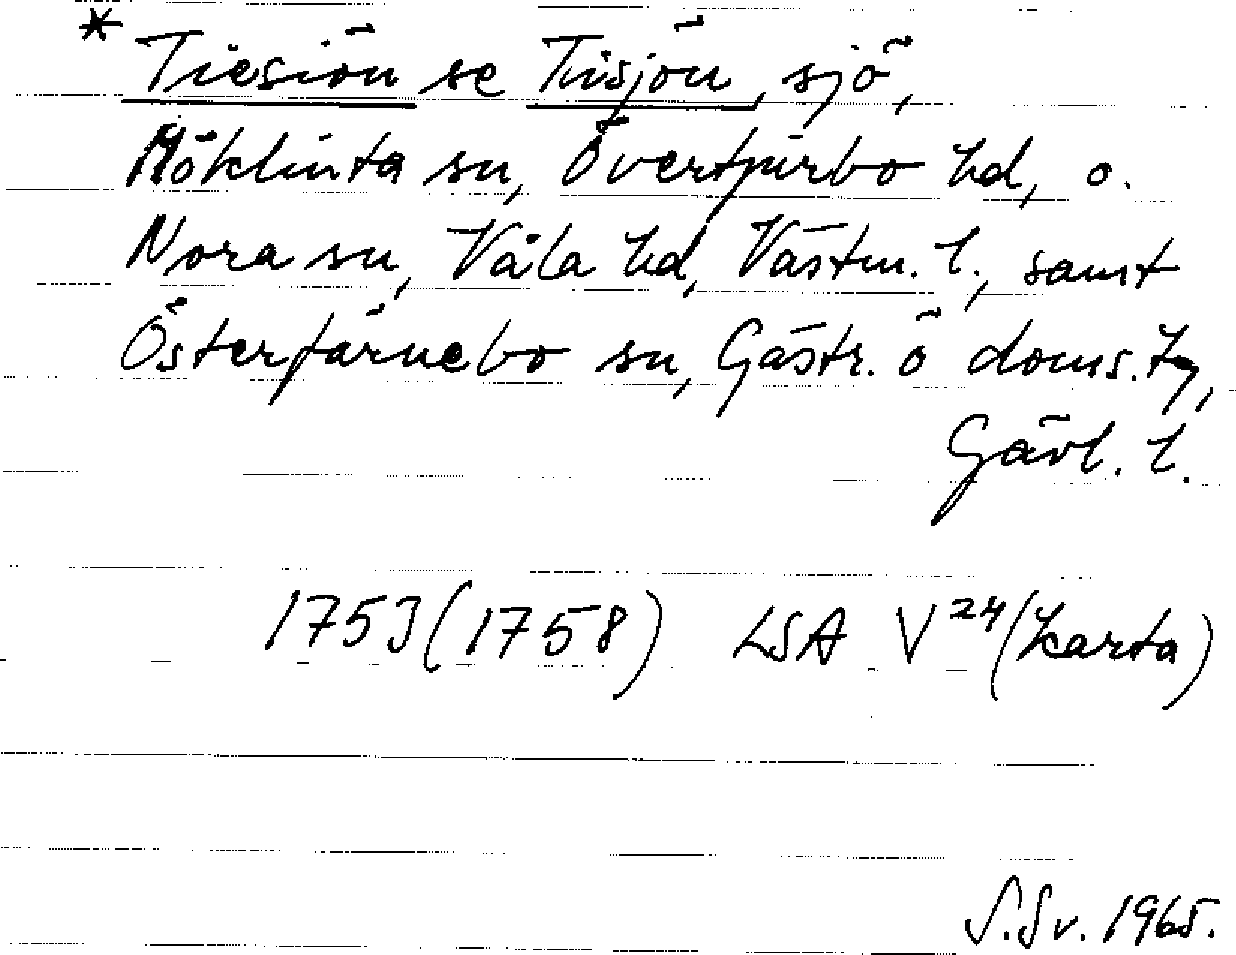 * Tiesiön se Tisjön, sjö,
Möklinta sn, Övertjurbo hd, o.
Nora sn, Våla hd, Västm. l., samt
Österfärnebo sn, Gästr. ö doms.tg,
Gävl. l.
1753 (1758) LSA V24 (karta)
S.Sv. 1965.